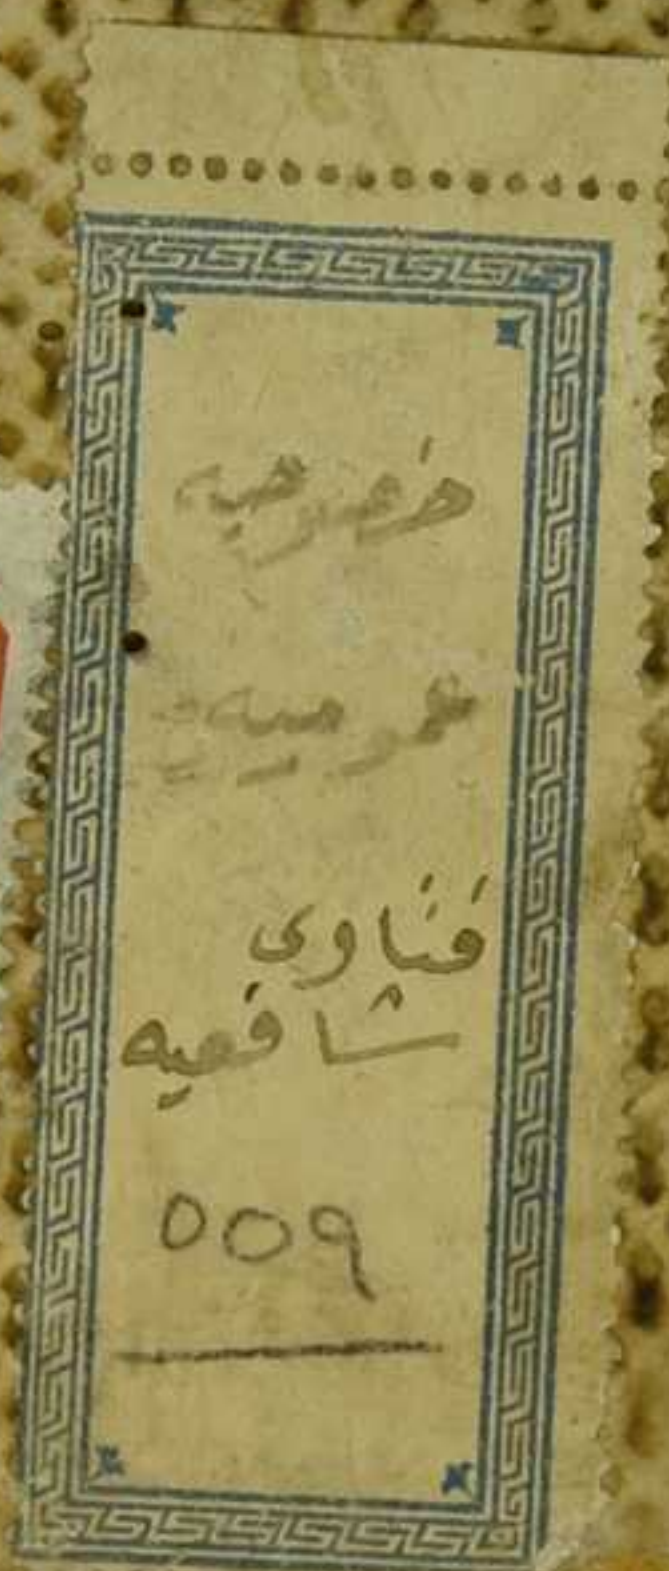 خصوصيه
عموميه
فتاوى
شافعيه
٥٥٩